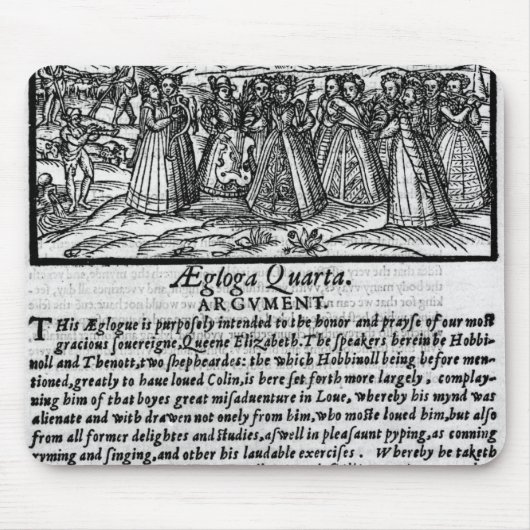 Ægloga Quarta.
ARGVMENT.
THis Æglogue is purposely intended to the honor and prayse of our most
gracious souereigne, Queene Elizabeth. The speakers herein be Hobbi-
noll and Thenott, two shepheardes: the which Hobbinoll being before men-
tioned, greatly to haue loued Colin, is here set forth more largely, complay-
ning him of that boyes great misaduenture in Loue, whereby his mynd was
alienate and with drawen not onely from him, who moste loued him, but also
from all former delightes and studies, aswell in pleasaunt pyping, as conning
ryming and singing, and other his laudable exercises. Whereby he taketh